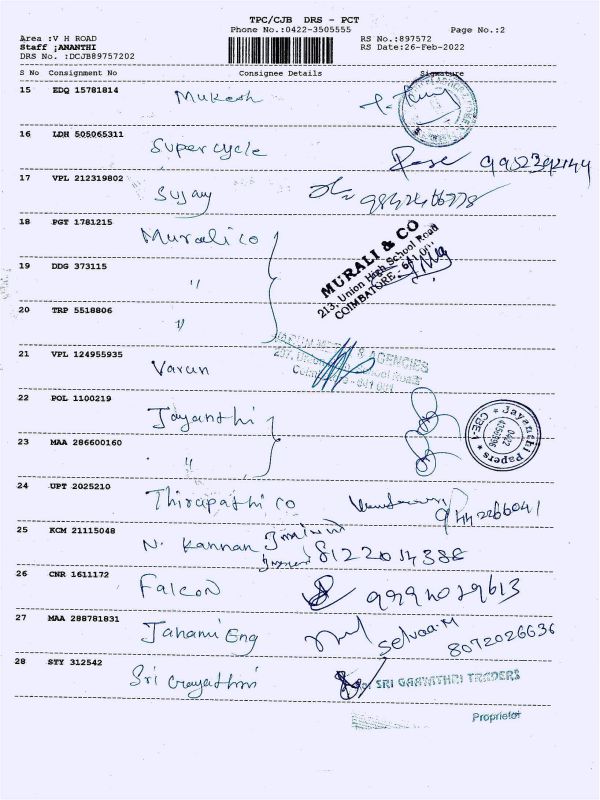 TPC/CJB DRS - PCT
Phone No.:0422-3505555 Page No.:2
Area :V H ROAD RS No.:897572
Staff ;ANANTHI RS Date:26-Feb-2022
DRS No. :DCJB89757202
S No Consignment No Consignee Details Signature
15 EDQ 15781814 Mukesh
16 LDH 505065311 Supercycle
17 VPL 212319802 Sujay 9842466778
18 PGT 1781215 Murali co
MURALI & CO
213, Union High School Road
COIMBATORE - 641 001
19 DDG 373115 "
20 TRP 5518806 "
21 VPL 124955935 Varun
& AGENCIES
22 POL 1100219 Jayanthi
Jayanthi Papers
0422
CBE-1
23 MAA 286600160 "
24 UPT 2025210 Thirupathi co 9442266041
25 KCM 21115048 N. Kannan 8122014388
26 CNR 1611172 Falcon
27 MAA 288781831 Janani Eng Selvaa.M 8072026636
28 STY 312542 Sri Gayathri
For SRI GAAYATHRI TRADERS
Proprietor